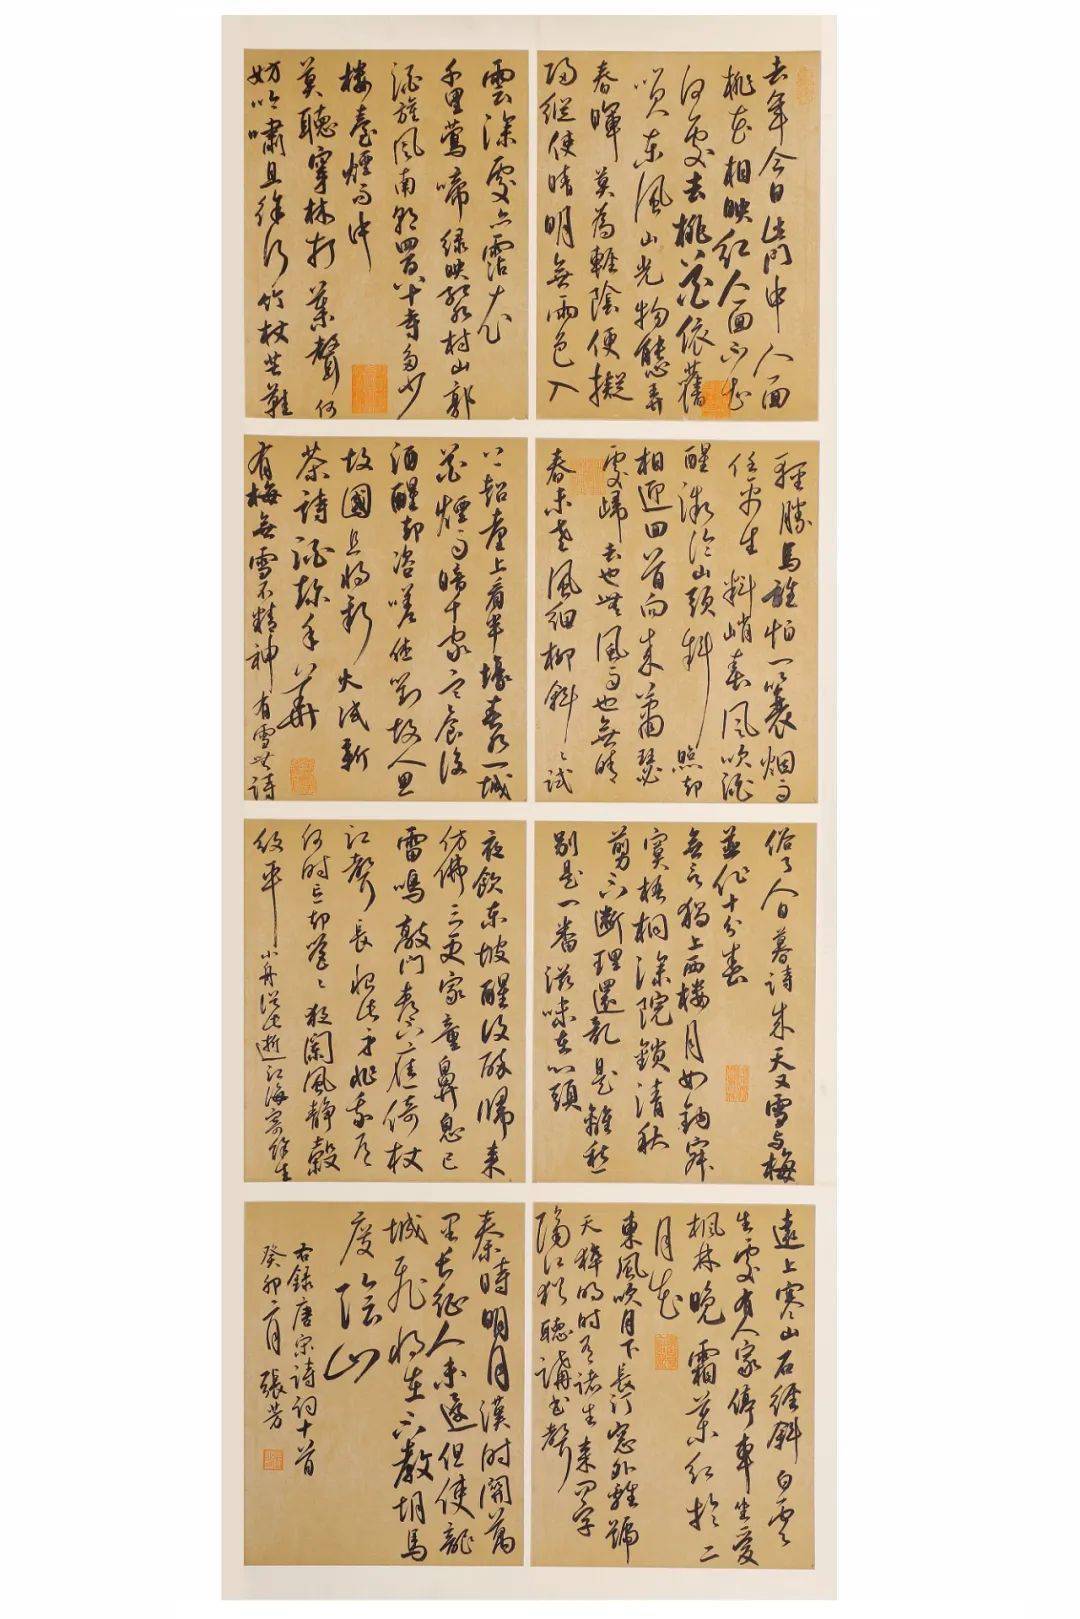 去年今日此門中人面
桃花相映紅人面不知
何處去桃花依舊
笑東風山光物態弄
春暉莫為輕陰便擬
歸縱使晴明無雨色入
雲深處亦霑衣
千里鶯啼綠映紅水村山郭
酒旗風南朝四百八十寺多少
樓臺煙雨中
莫聽穿林打葉聲何
妨吟嘯且徐行竹杖芒鞋
輕勝馬誰怕一蓑烟雨
任平生料峭春風吹酒
醒微冷山頭斜照却
相迎回首向來蕭瑟
處歸去也無風雨也無晴
春未老風細柳斜斜試
上超臺上看半壕春水一城
花煙雨暗千家寒食後
酒醒却咨嗟休對故人思
故國且將新火試新
茶詩酒趁年華
有梅無雪不精神有雪無詩
俗了人日暮詩成天又雪與梅
並作十分春
無言獨上西樓月如鉤寂
寞梧桐深院鎖清秋
剪不斷理還亂是離愁
別是一番滋味在心頭
夜飲東坡醒復醉歸來
仿佛三更家童鼻息已
雷鳴敲門都不應倚杖
江聲長恨此身非我有
何時忘却營營夜闌風靜縠
紋平小舟從此逝江海寄餘生
遠上寒山石徑斜白雲
生處有人家停車坐愛
楓林晚霜葉紅於二
月花
東風吹月下長汀窓外雞號
天時有諸生來問字
隔江猶聽讀書聲
秦時明月漢時關萬
里長征人未還但使龍
城飛將在不教胡馬
度陰山
右錄唐宋詩詞十首
癸卯二月張芳